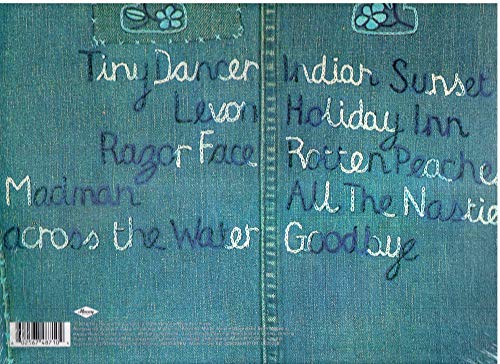 Tiny Dancer
Levon
Razor Face
Madman
across the Water
Indian Sunset
Holiday Inn
Rotten Peache
All The Nastie
Goodbye
Mercury